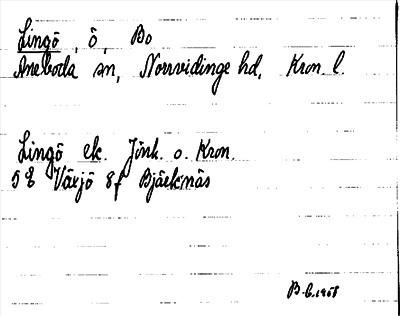 Lingö, ö, Bo
Aneboda sn, Norrvidinge hd, Kron. l.
Lingö ek. Jönk. o. Kron.
5 E Växjö 8f Bjäeknäs
B-b. 1958